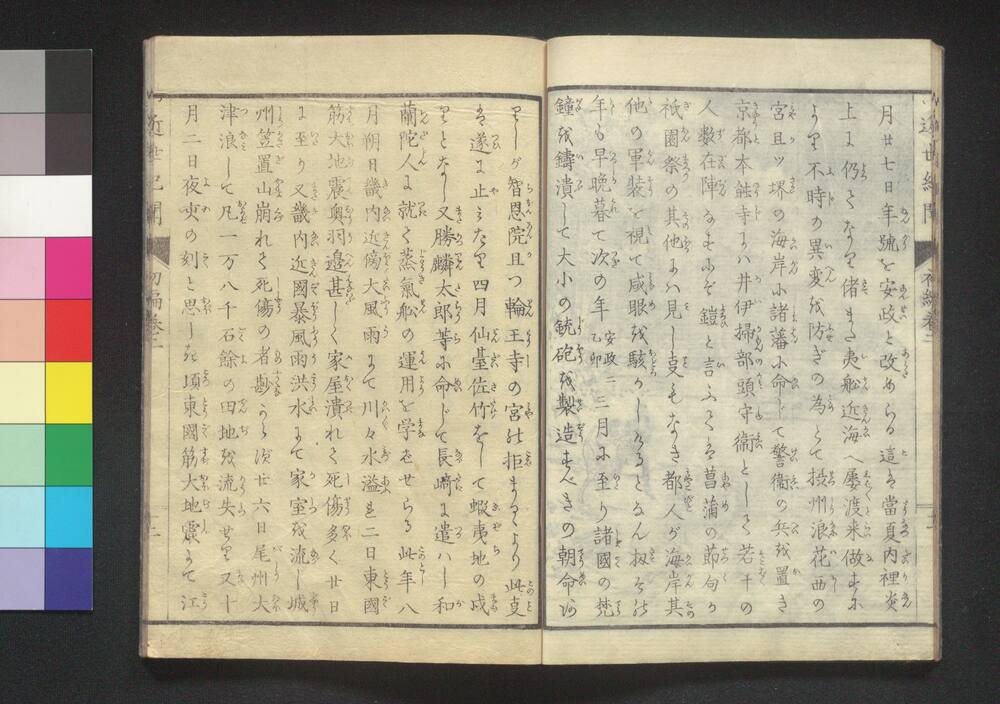 月廿七日年號を安政と改めらる這は當夏内裡炎
上に仍てなり偖また夷舩近海へ屡渡来做すに
より不時の異変を防ぎの為とて摂州浪花西の
宮且ッ堺の海岸に諸藩に命じて警衛の兵を置き
京都本能寺には井伊掃部頭守衛として若干の
人数在陣なすにぞ鎧と言ふては菖蒲の節句か
祇園祭の其他には見し事もなき都人が海岸其
他の軍装を視て咸眼を駭かしけるとなん扨その
年も早晩暮て次の年安政二乙卯三月に至り諸國の梵
鐘を鋳潰して大小の銃砲を製造すべきの朝命あ
りしが智恩院且つ輪王寺の宮の拒まるゝより此事
は遂に止みたり四月仙臺佐竹をして蝦夷地の戍
りとなし又勝麟太郎等に命じて長崎に遣はし和
蘭陀人に就て蒸氣舩の運用を学ばせらる此年八
月朔日畿内近傍大風雨にて川々水溢れ二日東國
筋大地震奥羽邊甚しく家屋潰れて死傷多く廿日
に至り又畿内近國暴風雨洪水にて家室を流し城
州笠置山崩れて死傷の者尠からず廿六日尾州大
津浪して凡一万八千石餘の田地を流失せり又十
月二日夜亥の刻と思しき頃東國筋大地震にて江
近世紀聞
初編巻二